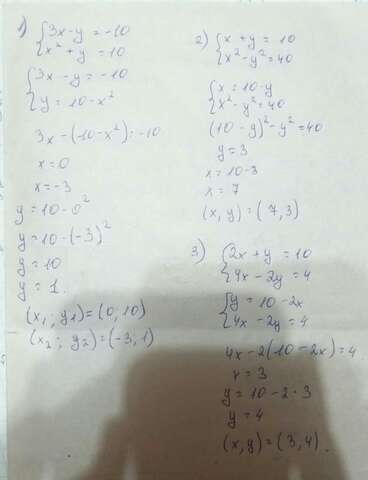 1) {3x-y=-10
{x²+y=10
{3x-y=-10
{y=10-x²
3x-(10-x²)=-10
x=0
x=-3
y=10-0²
y=10-(-3)²
y=10
y=1.
(x₁; y₁)=(0; 10)
(x₂; y₂)=(-3; 1)
2) {x+y=10
{x²-y²=40
{x=10-y
{x²-y²=40
(10-y)²-y²=40
y=3
x=10-3
x=7
(x, y)=(7,3)
3) {2x+y=10
{4x-2y=4
{y=10-2x
{4x-2y=4
4x-2(10-2x)=4
x=3
y=10-2·3
y=4
(x,y)=(3,4).